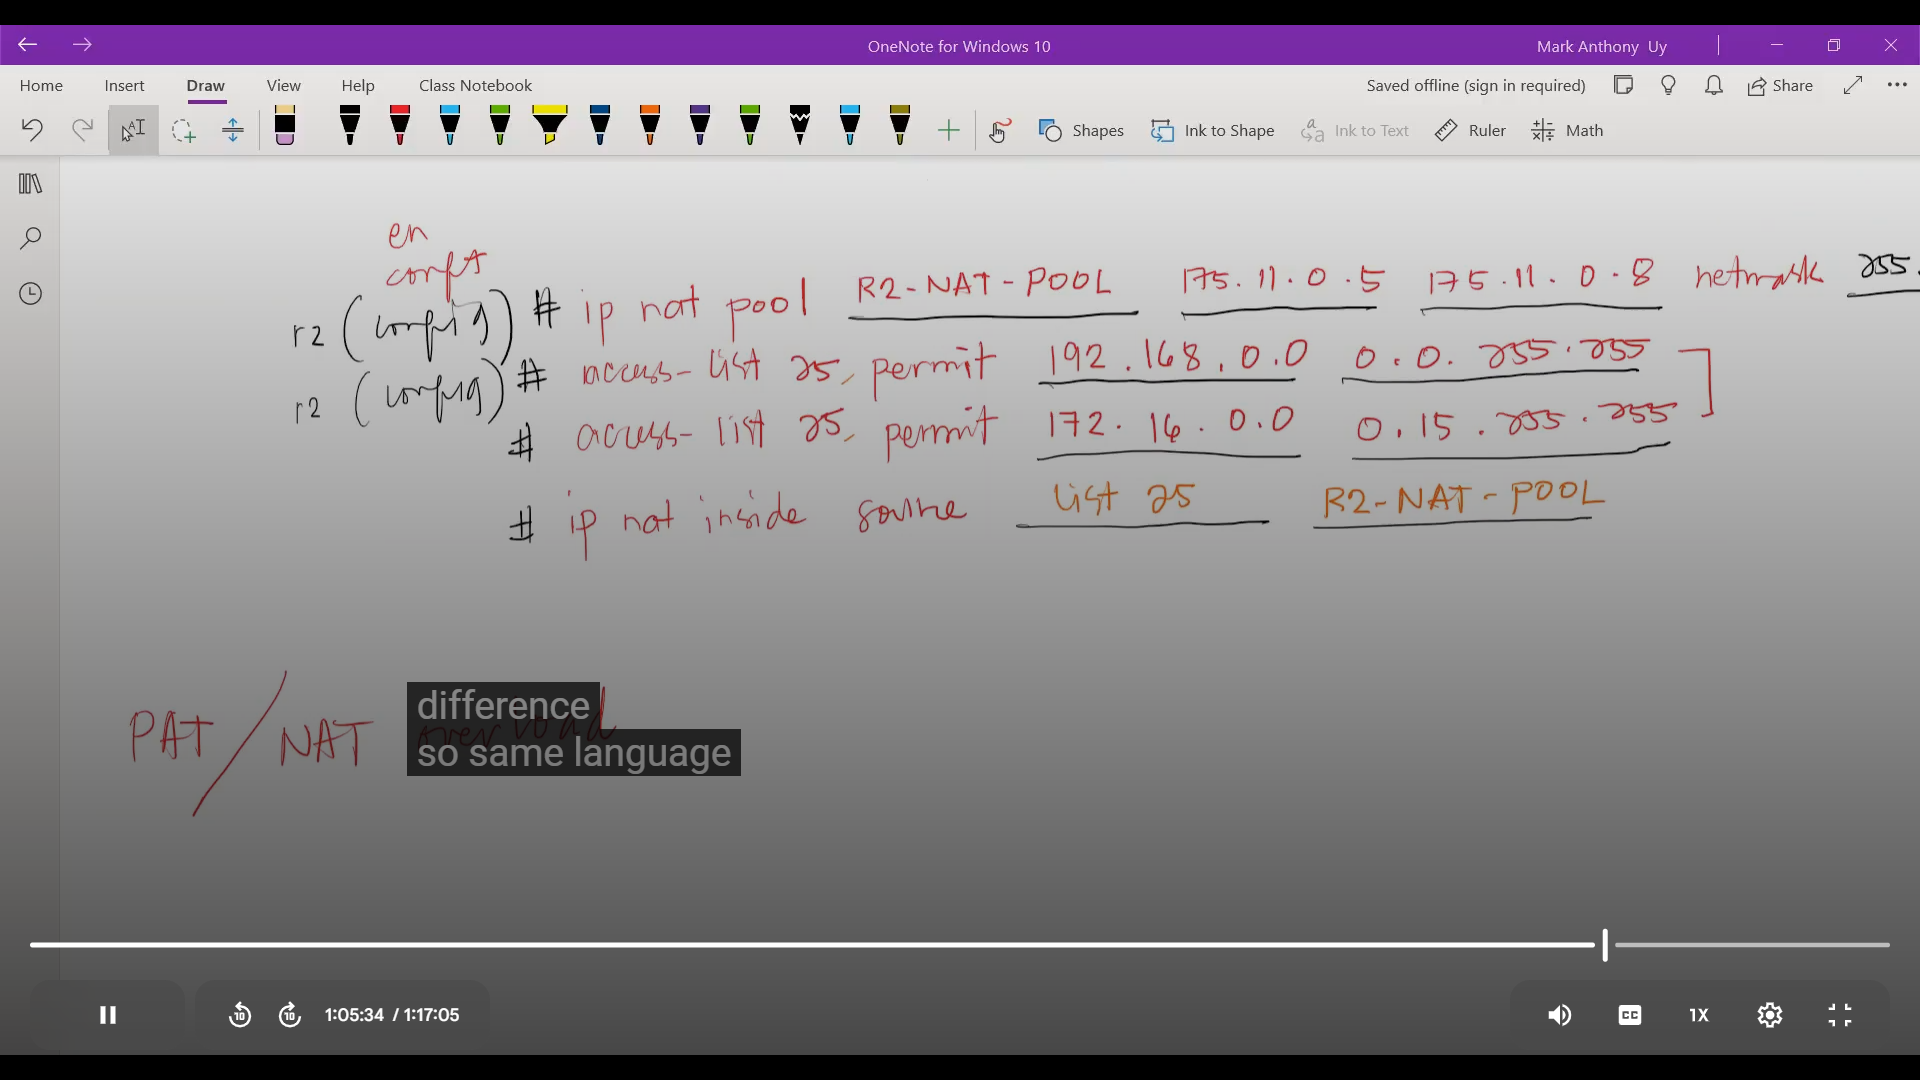 OneNote for Windows 10
Mark Anthony Uy
Home Insert Draw View Help Class Notebook
Saved offline (sign in required) Share
Shapes Ink to Shape Ink to Text Ruler Math
en
conf t
r2 (config) # ip nat pool R2-NAT-POOL 175.11.0.5 175.11.0.8 netmask 255.
r2 (config) # access-list 25, permit 192.168.0.0 0.0.255.255
# access-list 25, permit 172.16.0.0 0.15.255.255
# ip nat inside source list 25 R2-NAT-POOL
PAT / NAT overload
difference
so same language
10 10 1:05:34 / 1:17:05 CC 1X